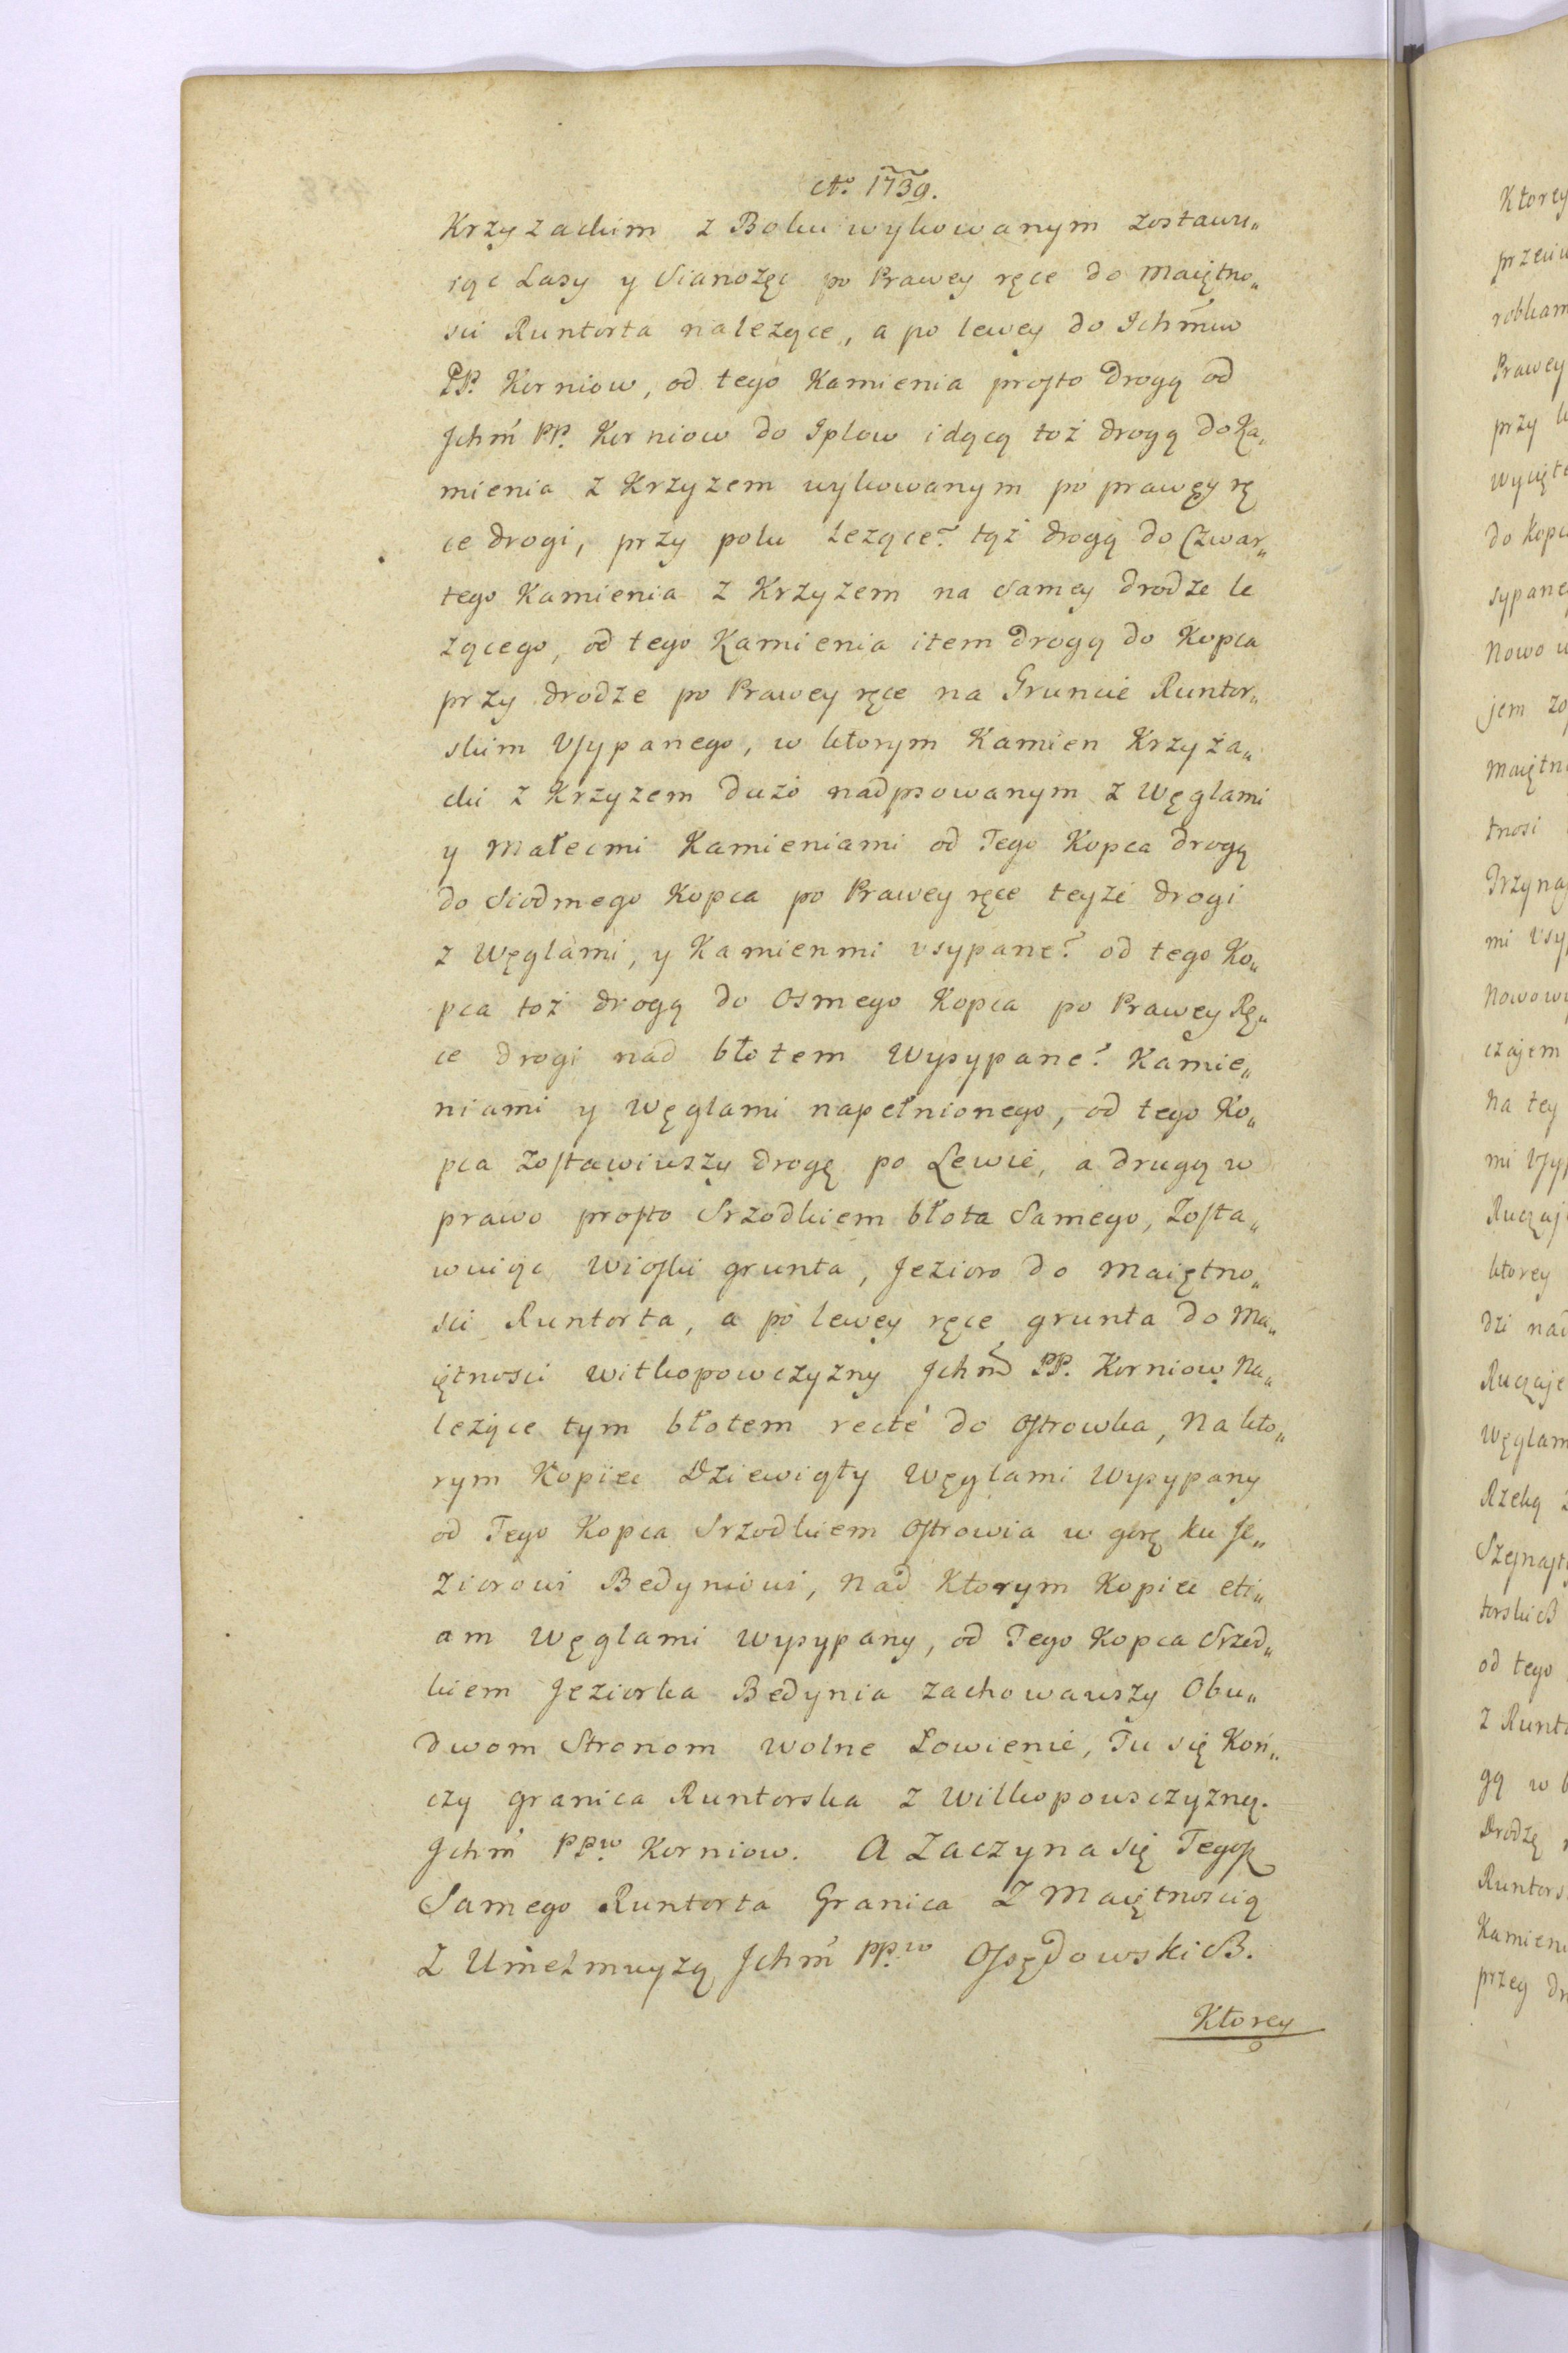 Aº 1739.
Krzyzackim z Boku wykowanym zostawu„
iąc Lasy y Sianożęc po Prawey ręce do Maiętno„
sci Runtorta nalezące, a po lewey do Ichmciow
PP. Korniow, od tego Kamienia prosto drogą od
Jchm PP. Korniow do Iplow idącą toż drogą do Ka„
mienia z Krzyzem wykowanym po prawey rę
ce drogi, przy polu lezące? tąż drogą do Czwar„
tego Kamienia z Krzyzem na samey drodze le
zącego, od tego Kamienia item drogą do Kopca
przy drodze po Prawey ręce na Gruncie Runtor„
skim Vsypanego, w ktorym Kamien Krzyża„
cki z Krzyzem dużo nadpsowanym z Węglami
y Małemi Kamieniami od Tego Kopca drogą
do Siodmego Kopca po Prawey ręce teyże drogi
z Węglami, y Kamienmi vsypane? od tego Ko„
pca toż drogą do Osmego Kopca po Prawey Rę„
ce drogi nad błotem Wysypane? Kamie„
niami y Węglami napełnionego, od tego Ko„
pca zostawiwszy drogę po Lewie, a drugą w
prawo prosto Srzodkiem błota Samego, Zosta„
wuiąc Wioski grunta, Jezioro do Maiętno„
sci Runtorta, a po lewey ręce grunta do Ma„
iętnosci Witkopowczyzny Jchm PP. Korniow Na„
leżące tym błotem recte do Ostrowka, Na kto„
rym Kopiec Dziewiąty Węglami Wysypany
od Tego Kopca Srzodkiem Ostrowia w gorę ku Je„
ziorowi Bedyniowi, Nad Ktorym Kopiec eti„
am Węglami wysypany, od Tego Kopca Srzed„
kiem Jeziorka Bedynia zachowawszy Obu„
dwom Stronom wolne Łowienie, Tu się Koń„
czy granica Runtorska z Witkopowsczyzną.
Jchm PPw Korniow. A Zaczyna się Tegoż
Samego Runtorta Granica Z Maiętnoscią
Z Umelmuyzą Jchm PPw Osędowskich.
Ktorey